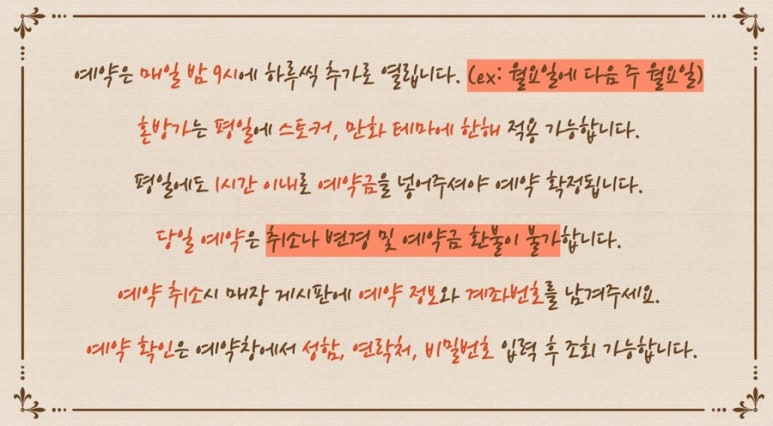 예약은 매일 밤 9시에 하루씩 추가로 열립니다. (ex: 월요일에 다음 주 월요일)
혼방가는 평일에 스토커, 만화 테마에 한해 적용 가능합니다.
평일에도 1시간 이내로 예약금을 넣어주셔야 예약 확정됩니다.
당일 예약은 취소나 변경 및 예약금 환불이 불가합니다.
예약 취소시 매장 게시판에 예약 정보와 계좌번호를 남겨주세요.
예약 확인은 예약창에서 성함, 연락처, 비밀번호 입력 후 조회 가능합니다.